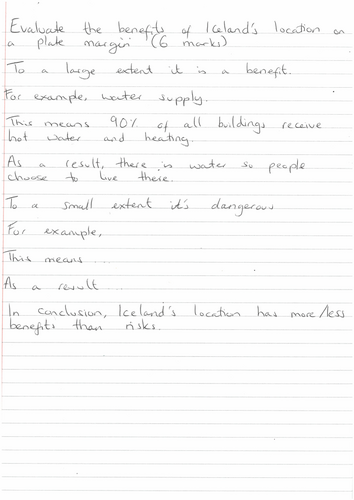 Evaluate the benefits of Iceland's location on
a plate margin (6 marks)
To a large extent it is a benefit.
For example, water supply.
This means 90% of all buildings receive
hot water and heating.
As a result, there is water so people
choose to live there.
To a small extent it's dangerous
For example,
This means ...
As a result ...
In conclusion, Iceland's location has more/less
benefits than risks.